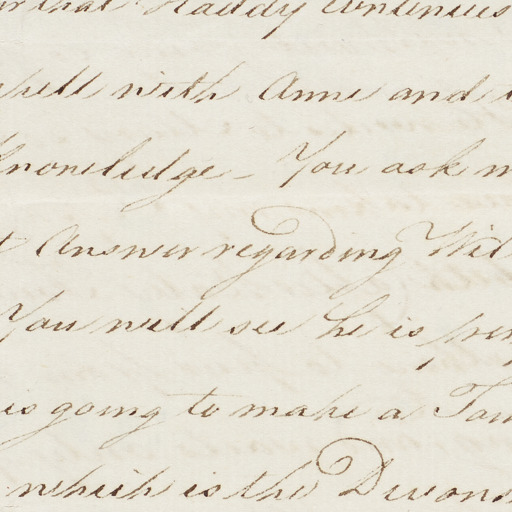 that Haddy continues
well with Anne and
Knowledge - You ask m
t Answer regarding Wil
You will see he is per
is going to make a Tou
which is the Devons